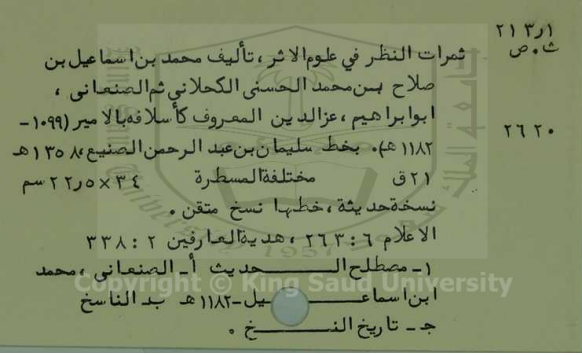 ٢١٣ر١
ث٠ص
ثمرات النظر في علوم الاثر ، تأليف محمد بن اسماعيل بن
صلاح بن محمد الحسنى الكحلاني ثم الصنعانى ،
ابو ابراهيم ، عزالدين المعروف كأسلافه بالامير (١٠٩٩-
٢٦٢٠
١١٨٢ هـ). بخط سليمان بن عبد الرحمن الصنيع، ١٣٥٨هـ
٢١ق مختلفة المسطرة ٣٤×٢٢٫٥ سم
نسخة حديثة ، خطها نسخ متقن .
الاعلام ٦ : ٢٦٣ ، هدية العارفين ٢ : ٣٣٨
١- مصطلح الـــحديث أ- الصنعانى ، محمد
ابن اسماعـــيل -١١٨٢هـ ب- الناسخ
جـ - تاريخ النـــسخ .
Copyright © King Saud University
1957